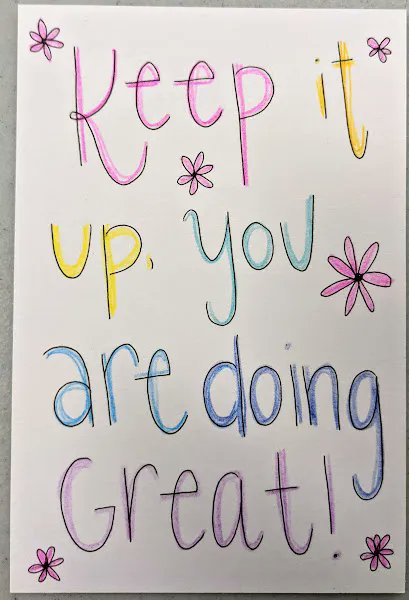 Keep it
up, you
are doing
Great!